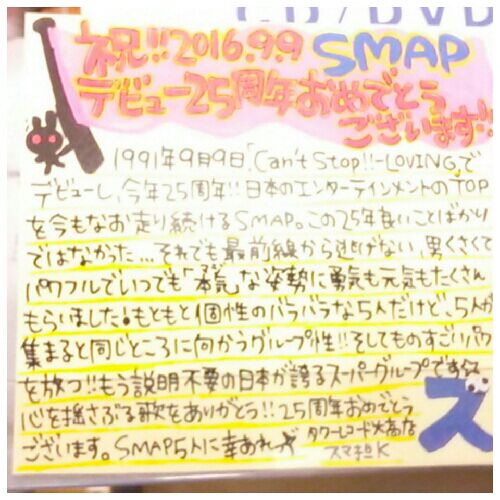 CD/DVD
祝!!2016.9.9 SMAP
デビュー25周年おめでとう
ございます!!
1991年9月9日、「Can't Stop!!-LOVING」で
デビューし、今年25周年!!日本のエンターテインメントのTOP
を今もなお走り続けるSMAP。この25年良いことばかり
ではなかった…それでも最前線から逃げない、男くさくて
パワフルでいつでも「本気」な姿勢に勇気も元気もたくさん
もらいました!もともと個性のバラバラな5人だけど、5人が
集まると同じところに向かうグループ性!!そしてものすごいパワ
を放つ!!もう説明不要の日本が誇るスーパーグループです☆
心を揺さぶる歌をありがとう!!25周年おめでとう
ございます。SMAP5人に幸あれ☆
タワーレコード大高店
スマ担K
ス